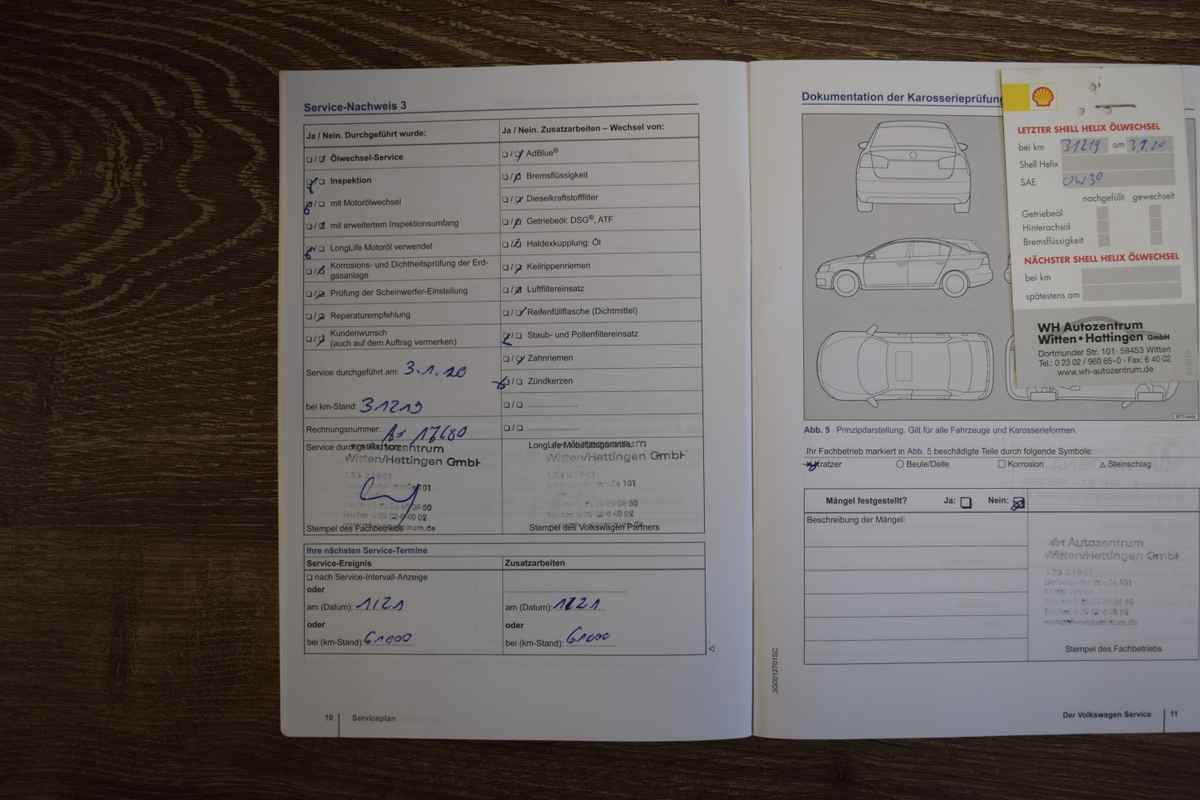 Service-Nachweis 3
Ja / Nein. Durchgeführt wurde:
Ölwechsel-Service
Inspektion
mit Motorölwechsel
mit erweitertem Inspektionsumfang
LongLife Motoröl verwendet
Korrosions- und Dichtheitsprüfung der Erd-
gasanlage
Prüfung der Scheinwerfer-Einstellung
Reparaturempfehlung
Kundenwunsch
(auch auf dem Auftrag vermerken)
Service durchgeführt am: 3.1.20
bei km-Stand: 31219
Rechnungsnummer:
Service durchgeführt
Autozentrum
Witten/Hattingen GmbH
Stempel des Fachbetriebs
Ja / Nein. Zusatzarbeiten – Wechsel von:
AdBlue®
Bremsflüssigkeit
Dieselkraftstofffilter
Getriebeöl: DSG®, ATF
Haldexkupplung: Öl
Keilrippenriemen
Luftfiltereinsatz
Reifenfüllflasche (Dichtmittel)
Staub- und Pollenfiltereinsatz
Zahnriemen
Zündkerzen
LongLife Mobilitätsgarantie
Witten/Hattingen GmbH
Stempel des Volkswagen Partners
Ihre nächsten Service-Termine
Service-Ereignis
Zusatzarbeiten
nach Service-Intervall-Anzeige
oder
am (Datum): 1/21
am (Datum): 1/21
oder
oder
bei (km-Stand): 61000
bei (km-Stand): 61000
10 Serviceplan
Dokumentation der Karosserieprüfun
LETZTER SHELL HELIX ÖLWECHSEL
bei km 31219 am 3.1.20
Shell Helix
SAE 0W30
nachgefüllt gewechselt
Getriebeöl
Hinterachsöl
Bremsflüssigkeit
NÄCHSTER SHELL HELIX ÖLWECHSEL
bei km
spätestens am
WH Autozentrum
Witten • Hattingen GmbH
Dortmunder Str. 101 · 58453 Witten
Tel.: 0 23 02 / 960 65-0 · Fax: 6 40 02
www.wh-autozentrum.de
Abb. 5 Prinzipdarstellung. Gilt für alle Fahrzeuge und Karosserieformen.
Ihr Fachbetrieb markiert in Abb. 5 beschädigte Teile durch folgende Symbole:
Kratzer Beule/Delle Korrosion Steinschlag
Mängel festgestellt? Ja: Nein:
Beschreibung der Mängel:
WH Autozentrum
Witten/Hattingen GmbH
Stempel des Fachbetriebs
3G0012701SC
Der Volkswagen Service 11